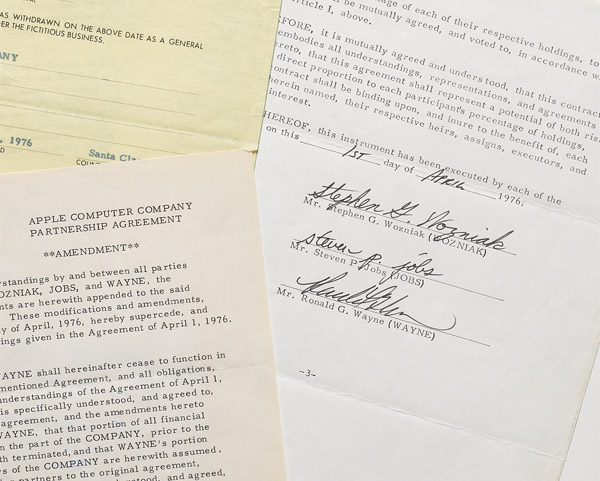 AS WITHDRAWN ON THE ABOVE DATE AS A GENERAL
PER THE FICTITIOUS BUSINESS.
ANY
, 1976
Santa Cla
COUN
age of each of their respective holdings, to
be mutually agreed, and voted to, in accordance w
rticle I, above.
EFORE, it is mutually agreed and understood, that this contrac
embodies all understandings, representations, and agreements
ereto, that this agreement shall represent a potential of both ris
direct proportion to each participant's percentage of holdings,
contract shall be binding upon, and inure to the benefit of, each
herein named, their respective heirs, assigns, executors, and
interest.
HEREOF, this instrument has been executed by each of the
on this 1ST day of APRIL 1976.
Stephen G. Wozniak
Mr. Stephen G. Wozniak (WOZNIAK)
steven p. jobs
Mr. Steven P. Jobs (JOBS)
Mr. Ronald G. Wayne (WAYNE)
-3-
APPLE COMPUTER COMPANY
PARTNERSHIP AGREEMENT
**AMENDMENT**
erstandings by and between all parties
OZNIAK, JOBS, and WAYNE, the
ents are herewith appended to the said
These modifications and amendments,
y of April, 1976, hereby supercede, and
ings given in the Agreement of April 1, 1976.
WAYNE shall hereinafter cease to function in
mentioned Agreement, and all obligations,
understandings of the Agreement of April 1,
is specifically understood, and agreed to,
agreement, and the amendments hereto
WAYNE, that that portion of all financial
n the part of the COMPANY, prior to the
th terminated, and that WAYNE's portion
rs of the COMPANY are herewith assumed,
partners to the original agreement,
rstood, and agreed,